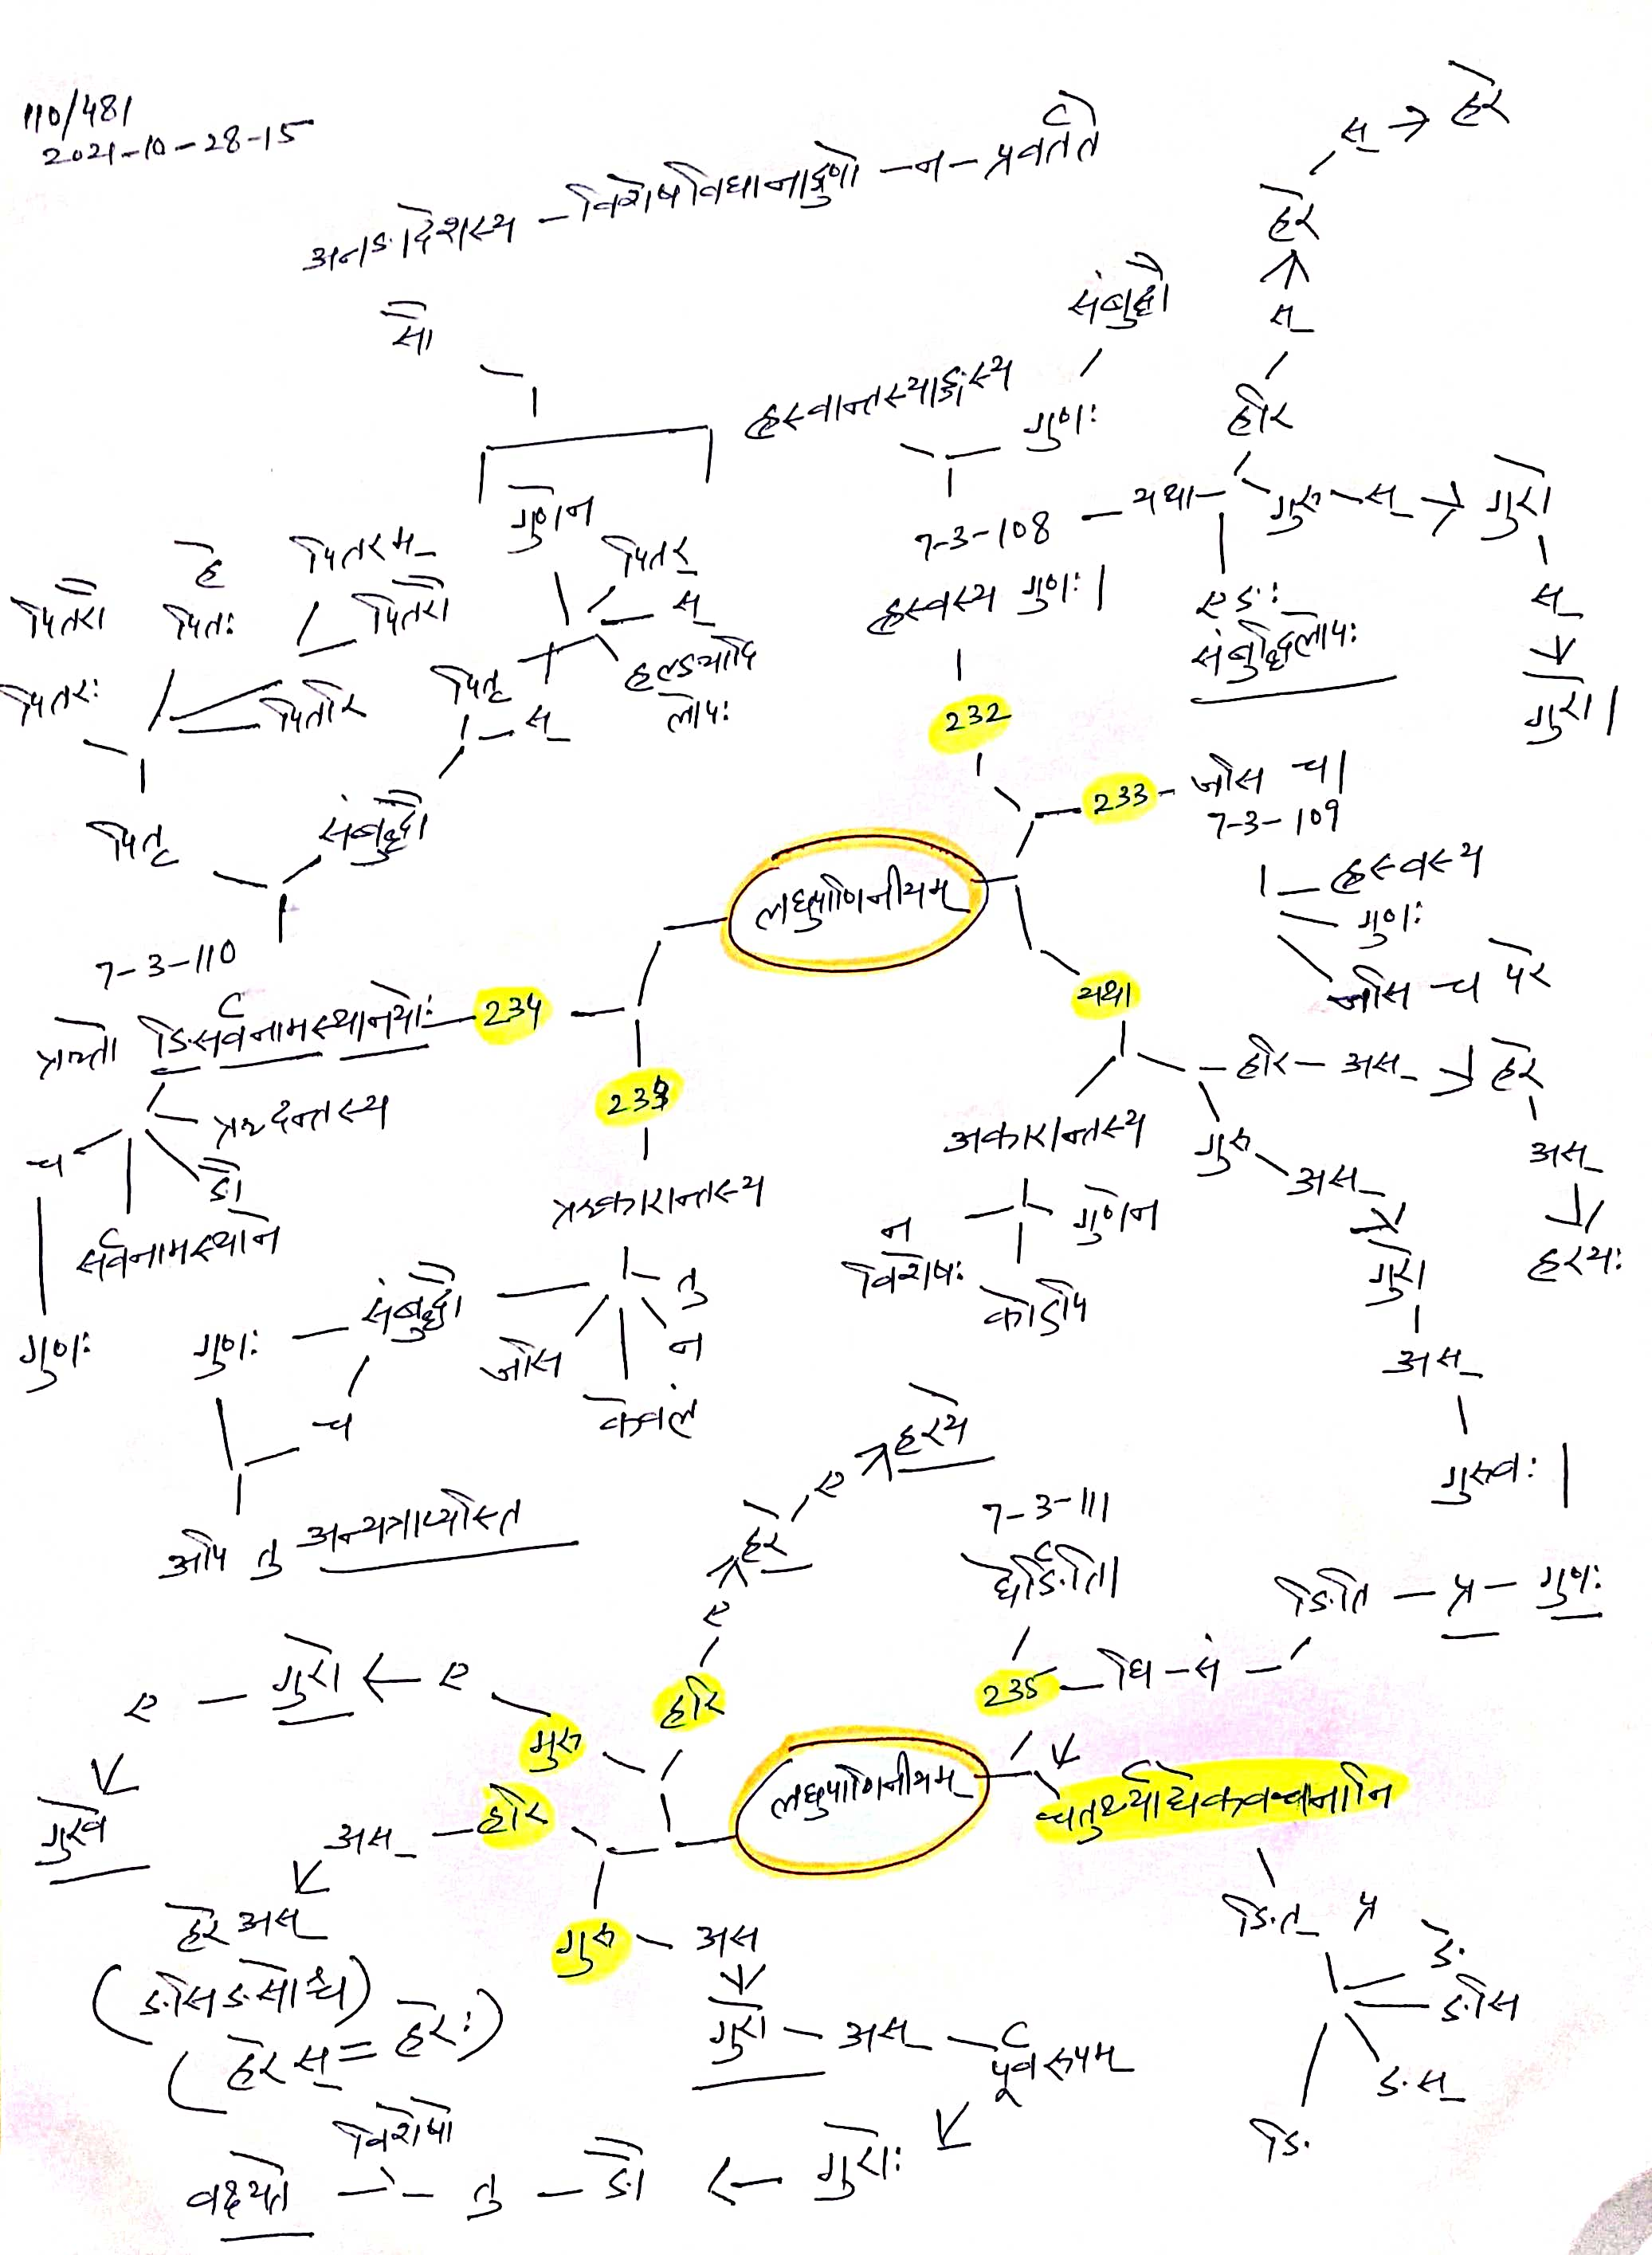 110/481
2021-10-28-15
अनङादेशस्य - विशेषविधानाद्गुणो - न - प्रवर्तते
सौ
गुणेन
पितर्
स्
हल्ङ्यादि
लोपः
पितृ - स्
हे
पितः
पितरम्
पितरौ
पितरौ
पितरः
पितरि
पितृ
संबुद्धौ
7-3-110
ऋतो ङिसर्वनामस्थानयोः - 234
ऋदन्तस्य
ङौ
सर्वनामस्थाने
च
गुणः
संबुद्धौ
ह्रस्वान्तस्याङ्गस्य
गुणः
7-3-108 - यथा
ह्रस्वस्य गुणः।
232
हरि
स्
हरे
स् → हरे
गुरु - स् → गुरो
स्
गुरो।
एङः
संबुद्धिलोपः
233 - जसि च।
7-3-109
ह्रस्वस्य
गुणः
जसि च परे
लघुपाणिनीयम्
यथा
हरि - अस् → हरे
अस्
हरयः
गुरु
अस्
गुरो
अस्
गुरवः।
अकारान्तस्य
गुणेन
न
विशेषः
कोऽपि
ऋकारान्तस्य
तु
न
केवलं
जसि
संबुद्धौ
गुणः
च
अपि तु अन्यत्राप्यस्ति
7-3-111
घेर्ङिति।
235 - घि - सं - ङिति - प्र - गुणः
लघुपाणिनीयम्
चतुर्थ्याद्येकवचनानि
ङित् प्र
ङे
ङसि
ङस्
ङि
हरि
ए
हरे
ए
हरये
गुरु
ए → गुरो - ए
गुरवे
हरि - अस्
हरे अस्
(ङसिङसोश्च)
(हरे स् = हरेः)
गुरु - अस
गुरो - अस् - पूर्वरूपम्
गुरोः → ङौ - तु - विशेषो - वक्ष्यते